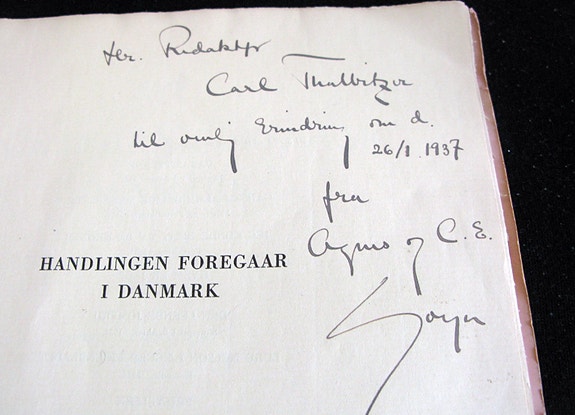 Hr. Redaktør
Carl Thalbitzer
til venlig Erindring om d.
26/1 1937
fra
Agnes og C.E.
Soya
HANDLINGEN FOREGAAR
I DANMARK